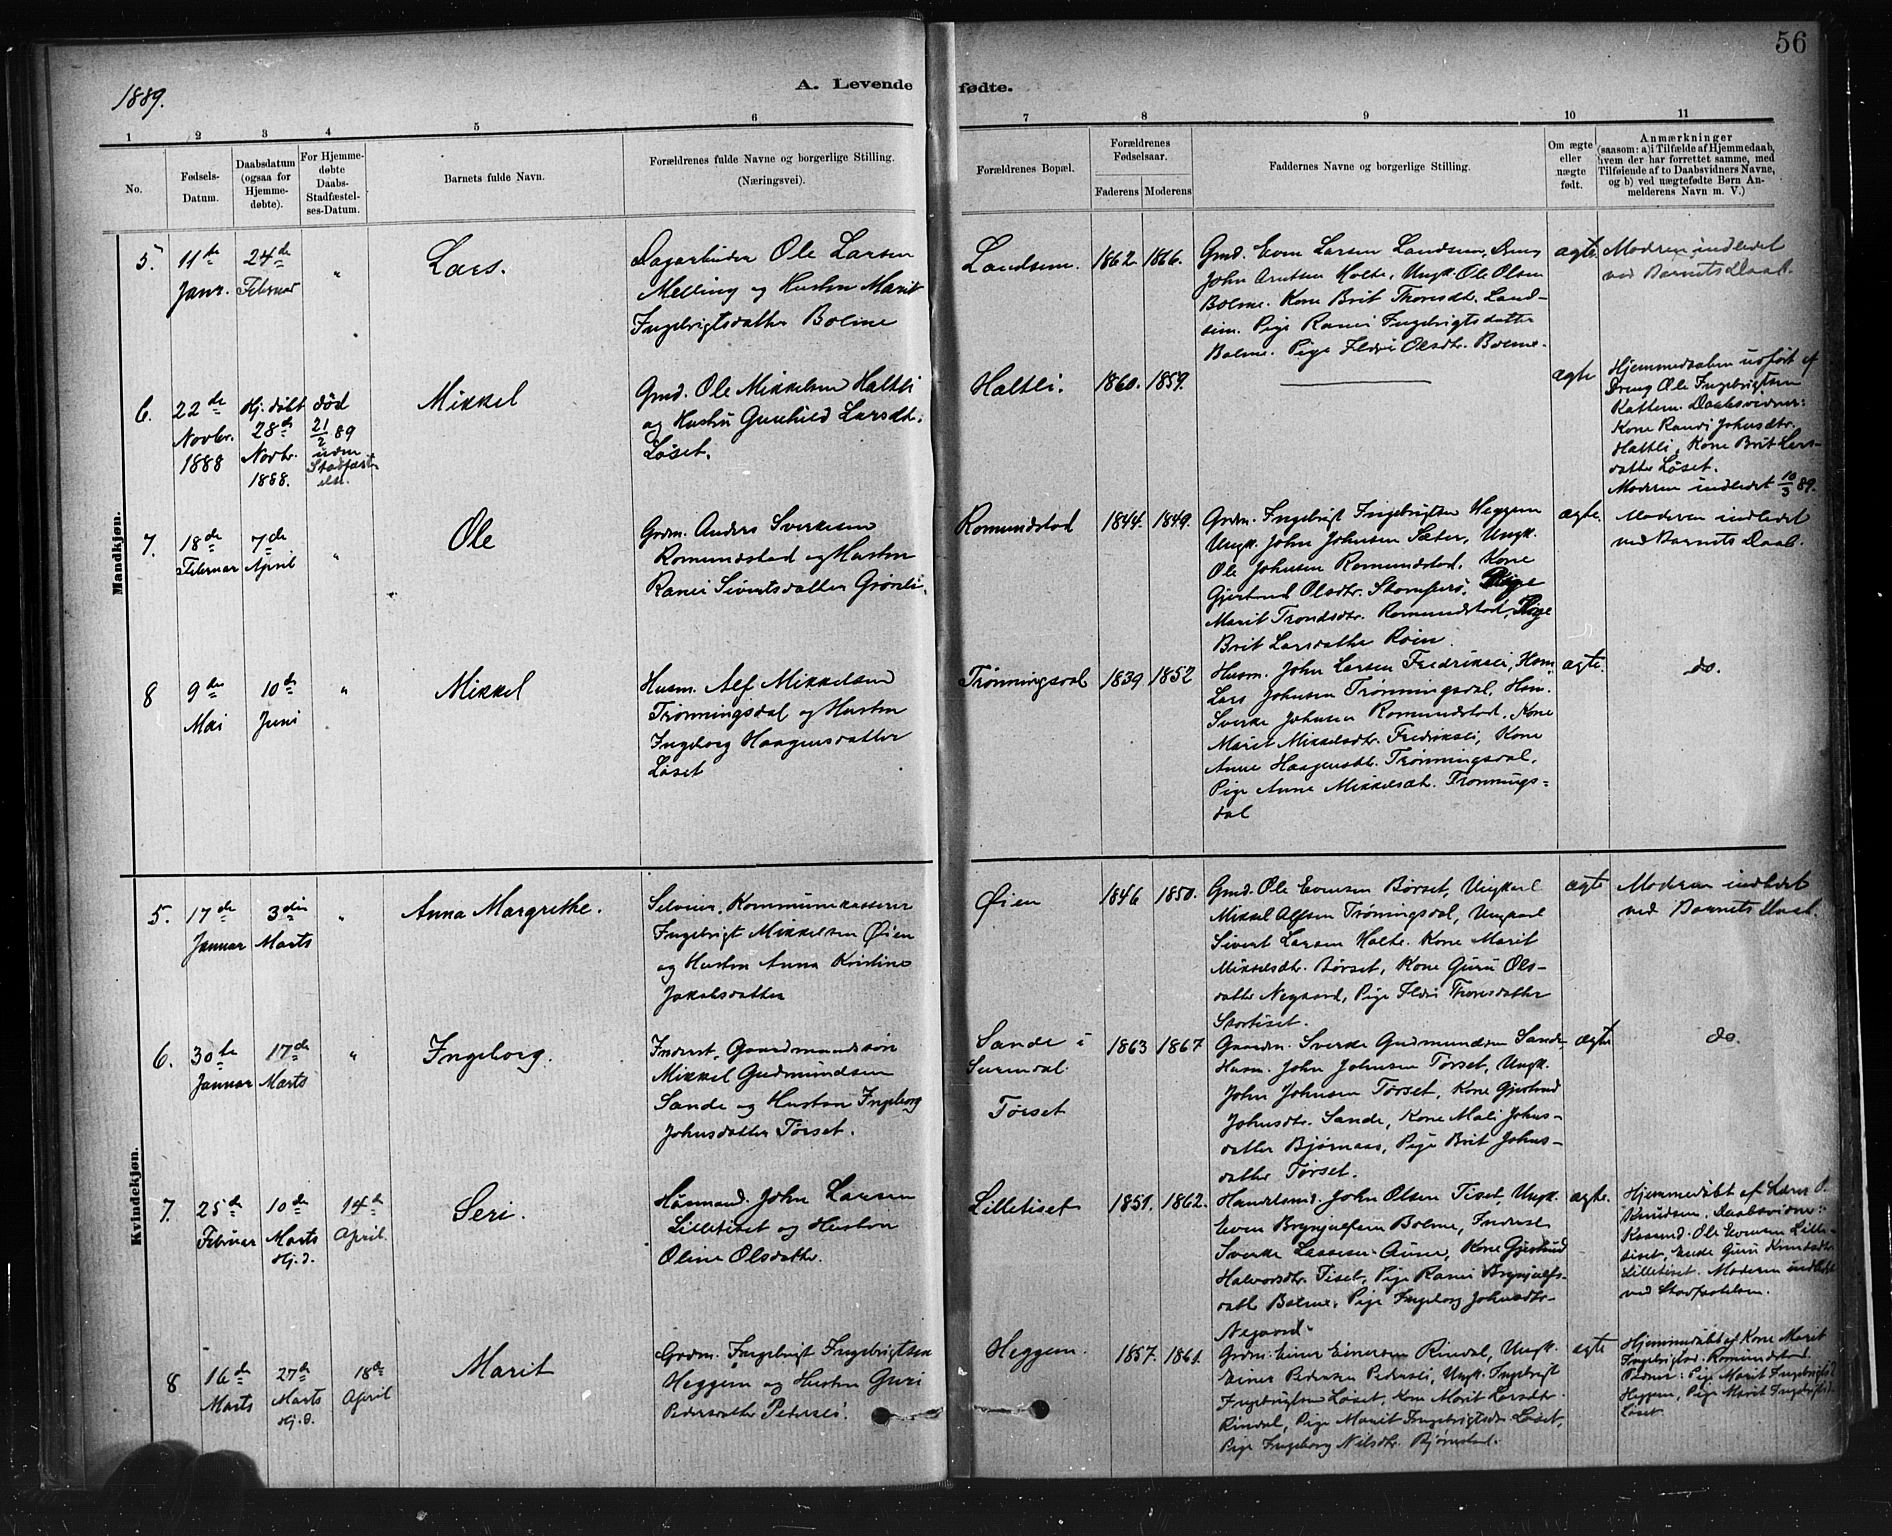 56
1889.
A. Levende fødte.
1 2 3 4 5 6 7 8 9 10 11
No.
Fødsels-
Datum.
Daabsdatum
(ogsaa for
Hjemme-
døbte).
For Hjemme-
døbte
Daabs-
Stadfæstel-
ses-Datum.
Barnets fulde Navn.
Forældrenes fulde Navne og borgerlige Stilling.
(Næringsvei).
Forældrenes Bopæl.
Forældrenes
Fødselsaar.
Faderens Moderens
Faddernes Navne og borgerlige Stilling.
Om ægte
eller
uægte
født.
Anmærkninger
(saasom: a) i Tilfælde af Hjemmedaab,
hvem der har forrettet samme, med
Tilføiende af to Daabsvidners Navne,
og b) ved uægtefødte Børn An-
melderens Navn m. V.)
Mandkjøn.
5.
11te
Janr.
24de
Februar
"
Lars.
Ole Larsen
Melling og Hustru Marit
Ingebrigtsdatter Bolme
Landsem.
1862. 1866.
Gmd. Even Larsen Landsem, Dreng
John Arntsen Holte, Ungk. Ole Olsen
Bolme. Kone Brit Thoresdtr. Land-
sem. Pige Ranei Ingebrigtsdatter
Bolme. Pige Ildri Olsdtr. Bolme.
ægte
Moderen indledet
ved Barnets Daab.
6.
22de
Novbr.
1888
Hj. døbt
28de
Novbr.
1888.
død
21/2 89
uden
Stadfæst-
else.
Mikkel
Gmd. Ole Mikkelsen Haltli
og Hustru Gunhild Larsdtr.
Løset.
Haltli.
1860. 1859.
ægte
Hjemmedaaben udført af
Dreng Ole Ingebrigtsen
Kattem. Daabsvidner:
Kone Randi Johnsdtr.
Haltli, Kone Brit Lars-
datter Løset.
Moderen indledet 10/3 89.
7.
18de
Februar
7de
April
"
Ole
Grdm. Anders Sverkesen
Romundstad og Hustru
Ranei Sivertsdatter Grønli.
Romundstad
1844. 1849.
Grdm. Ingebrigt Ingebrigtsen Heggem
Ungk. John Johnsen Sæter, Ungk.
Ole Johnsen Romundstad, Kone
Gjertrud Olsdtr.
Marit Trondsdtr. Romundstad, Pige
Brit Larsdatter Røen
ægte.
Moderen indledet
ved Barnets Daab.
8
9de
Mai
10de
Juni
"
Mikkel
Husm. Alf Mikkelsen
Trønningsdal og Hustru
Ingeborg Haagensdatter
Løset
Trønningsdal
1839. 1852
Husm. John Larsen Fredriksli, Husm.
Lars Johnsen Trønningsdal, Husm.
Sverke Johnsen Romundstad, Kone
Marit Mikkelsdtr. Fredriksli, Kone
Anne Haagensdtr. Trønningsdal,
Pige Anne Mikkelsdtr. Trønnings-
dal
ægte
do.
Kvindekjøn.
5.
17de
Januar
3die
Marts
"
Anna Margrethe.
Selveier, Kommunekasserer
Ingebrigt Mikkelsen Øien
og Hustru Anna Kristine
Jakobsdatter
Øien
1846 1850.
Gmd. Ole Evensen Børset, Ungkarl
Mikkel Alfsen Trøningsdal, Ungkarl
Sivert Larsen Holte. Kone Marit
Mikkelsdtr. Børset, Kone Guru Ols-
datter Negaard, Pige Ildri Thoresdatter
Stortiset.
ægte
Moderen indledet
ved Barnets Daab.
6.
30te
Januar
17de
Marts
"
Ingeborg.
Inderst, Gaardmandssøn
Mikkel Gudmundsen
Sande og Hustru Ingeborg
Johnsdatter Tørset.
Sande i
Surendal.
Tørset
1863 1867
Gaardm. Sverke Gudmundsen Sande,
Husm. John Johnsen Tørset, Ungk.
John Johnsen Tørset, Kone Gjertrud
Johnsdtr. Sande, Kone Mali Johns-
datter Bjørnaas, Pige Brit Johns-
datter Tørset.
ægte
do.
7.
25de
Februar
10de
Marts
Hj. d.
14de
April
Seri.
Husmand John Larsen
Lilletiset og Hustru
Oline Olsdatter.
Lilletiset
1851. 1862.
Handelsmd. John Olsen Tiset, Ungk.
Even Brynjulfsen Bolme, Inderst
Sverke Lassesen Aune, Kone Gjertrud
Halvorsdtr. Tiset, Pige Ranei Brynjulfs-
datt. Bolme, Pige Ingeborg Johnsdtr.
Negaard.
ægte.
Hjemmedøbt af Lærer O.
Knudsen. Daabsvidner:
Ole Evensen Lille-
tiset, Enke Guru Knudsdtr.
Lilletiset. Moderen indledet
ved Stadfæstelsen.
8
16de
Marts
27de
Marts
Hj. d.
18de
April
Marit
Grdm. Ingebrigt Ingebrigtsen
Heggem og Hustru Guri
Pedersdatter Pedersli.
Heggem.
1857. 1861.
Grdm. Einer Einersen Rindal, Ungk.
Einer Pedersen Pedersli, Ungk. Ingebrigt
Ingebrigtsen Løset, Kone Marit Larsdtr.
Rindal, Pige Marit Ingebrigtsdr. Løset,
Pige Ingeborg Nilsdtr. Bjørnstad.
ægte
Hjemmedøbt af Kone Marit
Ingebrigtsd. Romundstad.
Pige Marit Ingebrigtsd.
Heggem, Pige Marit Ingebrigtsd.
Løset.